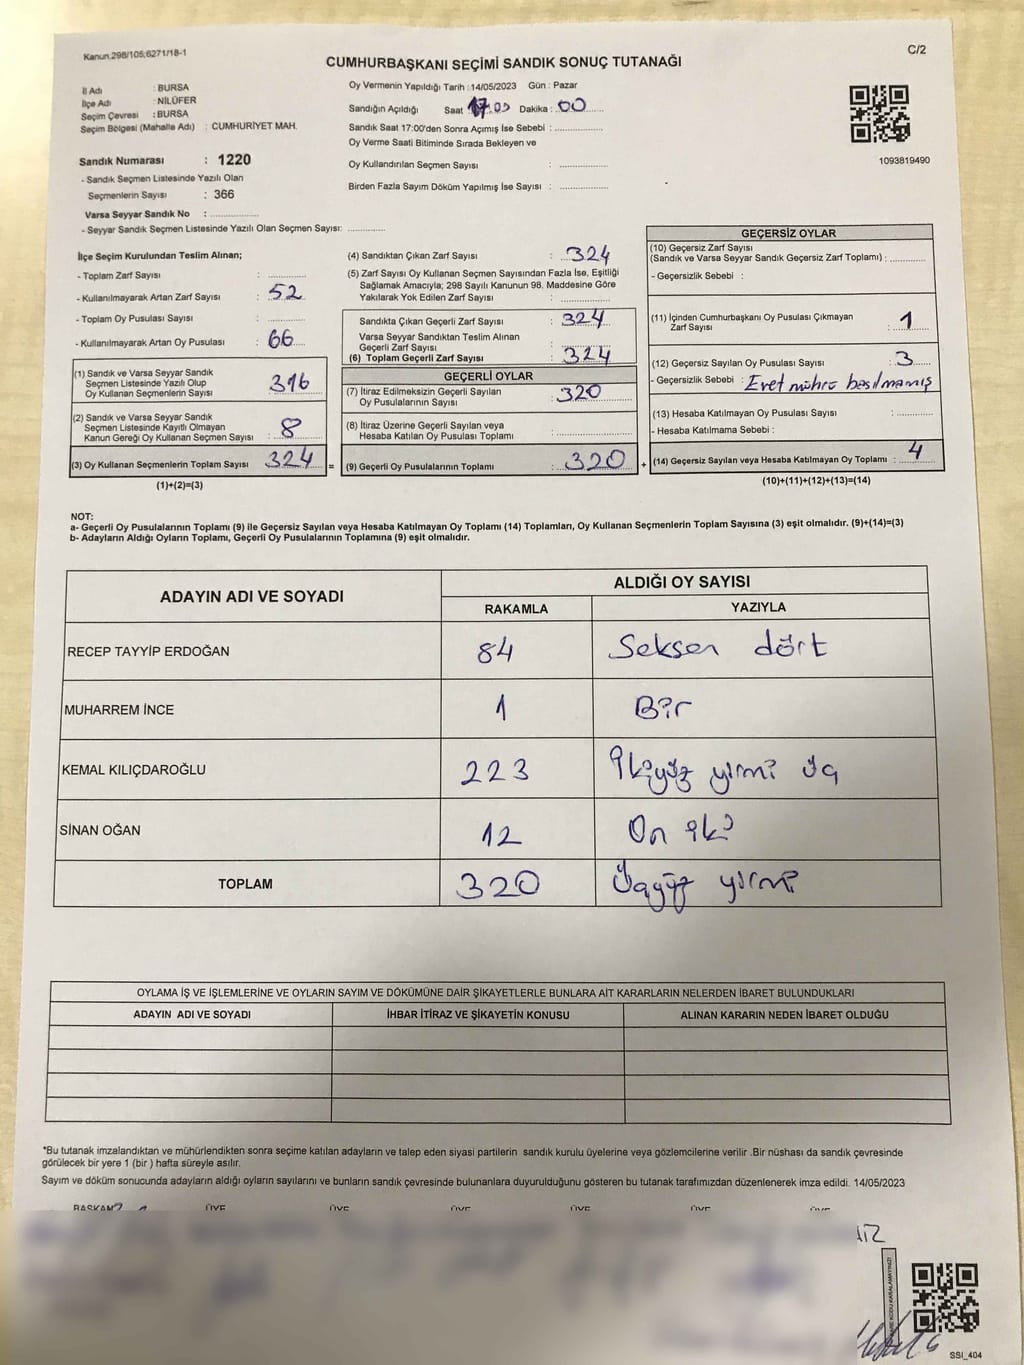 Kanun:298/105;6271/18-1
C/2
CUMHURBAŞKANI SEÇİMİ SANDIK SONUÇ TUTANAĞI
İl Adı : BURSA
İlçe Adı : NİLÜFER
Seçim Çevresi : BURSA
Seçim Bölgesi (Mahalle Adı) : CUMHURİYET MAH.
Sandık Numarası : 1220
- Sandık Seçmen Listesinde Yazılı Olan
Seçmenlerin Sayısı : 366
Varsa Seyyar Sandık No : ...............
- Seyyar Sandık Seçmen Listesinde Yazılı Olan Seçmen Sayısı: ............
Oy Vermenin Yapıldığı Tarih :14/05/2023 Gün : Pazar
Sandığın Açıldığı Saat 17.00 Dakika : 00
Sandık Saat 17:00'den Sonra Açımış İse Sebebi : ...............
Oy Verme Saati Bitiminde Sırada Bekleyen ve
Oy Kullandırılan Seçmen Sayısı : ...............
Birden Fazla Sayım Döküm Yapılmış İse Sayısı : ...............
1093819490
İlçe Seçim Kurulundan Teslim Alınan;
- Toplam Zarf Sayısı : ............
- Kullanılmayarak Artan Zarf Sayısı : 52
- Toplam Oy Pusulası Sayısı : ............
- Kullanılmayarak Artan Oy Pusulası : 66
(1) Sandık ve Varsa Seyyar Sandık
Seçmen Listesinde Yazılı Olup
Oy Kullanan Seçmenlerin Sayısı 316
(2) Sandık ve Varsa Seyyar Sandık
Seçmen Listesinde Kayıtlı Olmayan
Kanun Gereği Oy Kullanan Seçmen Sayısı : 8
(3) Oy Kullanan Seçmenlerin Toplam Sayısı 324 =
(1)+(2)=(3)
(4) Sandıktan Çıkan Zarf Sayısı : 324
(5) Zarf Sayısı Oy Kullanan Seçmen Sayısından Fazla İse, Eşitliği
Sağlamak Amacıyla; 298 Sayılı Kanunun 98. Maddesine Göre
Yakılarak Yok Edilen Zarf Sayısı : ...............
Sandıkta Çıkan Geçerli Zarf Sayısı : 324
Varsa Seyyar Sandıktan Teslim Alınan
Geçerli Zarf Sayısı
(6) Toplam Geçerli Zarf Sayısı : 324
GEÇERLİ OYLAR
(7) İtiraz Edilmeksizin Geçerli Sayılan
Oy Pusulalarının Sayısı : 320
(8) İtiraz Üzerine Geçerli Sayılan veya
Hesaba Katılan Oy Pusulası Toplamı : ...............
(9) Geçerli Oy Pusulalarının Toplamı : 320 +
GEÇERSİZ OYLAR
(10) Geçersiz Zarf Sayısı
(Sandık ve Varsa Seyyar Sandık Geçersiz Zarf Toplamı) : ............
- Geçersizlik Sebebi :
(11) İçinden Cumhurbaşkanı Oy Pusulası Çıkmayan
Zarf Sayısı : 1
(12) Geçersiz Sayılan Oy Pusulası Sayısı : 3
- Geçersizlik Sebebi : Evet mührü basılmamış
(13) Hesaba Katılmayan Oy Pusulası Sayısı : ............
- Hesaba Katılmama Sebebi :
(14) Geçersiz Sayılan veya Hesaba Katılmayan Oy Toplamı : 4
(10)+(11)+(12)+(13)=(14)
NOT:
a- Geçerli Oy Pusulalarının Toplamı (9) ile Geçersiz Sayılan veya Hesaba Katılmayan Oy Toplamı (14) Toplamları, Oy Kullanan Seçmenlerin Toplam Sayısına (3) eşit olmalıdır. (9)+(14)=(3)
b- Adayların Aldığı Oyların Toplamı, Geçerli Oy Pusulalarının Toplamına (9) eşit olmalıdır.
ADAYIN ADI VE SOYADI ALDIĞI OY SAYISI
RAKAMLA YAZIYLA
RECEP TAYYİP ERDOĞAN 84 Seksen dört
MUHARREM İNCE 1 Bir
KEMAL KILIÇDAROĞLU 223 İkiyüz yirmi üç
SİNAN OĞAN 12 On iki
TOPLAM 320 Üçyüz yirmi
OYLAMA İŞ VE İŞLEMLERİNE VE OYLARIN SAYIM VE DÖKÜMÜNE DAİR ŞİKAYETLERLE BUNLARA AİT KARARLARIN NELERDEN İBARET BULUNDUKLARI
ADAYIN ADI VE SOYADI İHBAR İTİRAZ VE ŞİKAYETİN KONUSU ALINAN KARARIN NEDEN İBARET OLDUĞU
*Bu tutanak imzalandıktan ve mühürlendikten sonra seçime katılan adayların ve talep eden siyasi partilerin sandık kurulu üyelerine veya gözlemcilerine verilir .Bir nüshası da sandık çevresinde
görülecek bir yere 1 (bir ) hafta süreyle asılır.
Sayım ve döküm sonucunda adayların aldığı oyların sayılarını ve bunların sandık çevresinde bulunanlara duyurulduğunu gösteren bu tutanak tarafımızdan düzenlenerek imza edildi. 14/05/2023
BAŞKAN ÜYE ÜYE ÜYE ÜYE ÜYE ÜYE
SSI_404